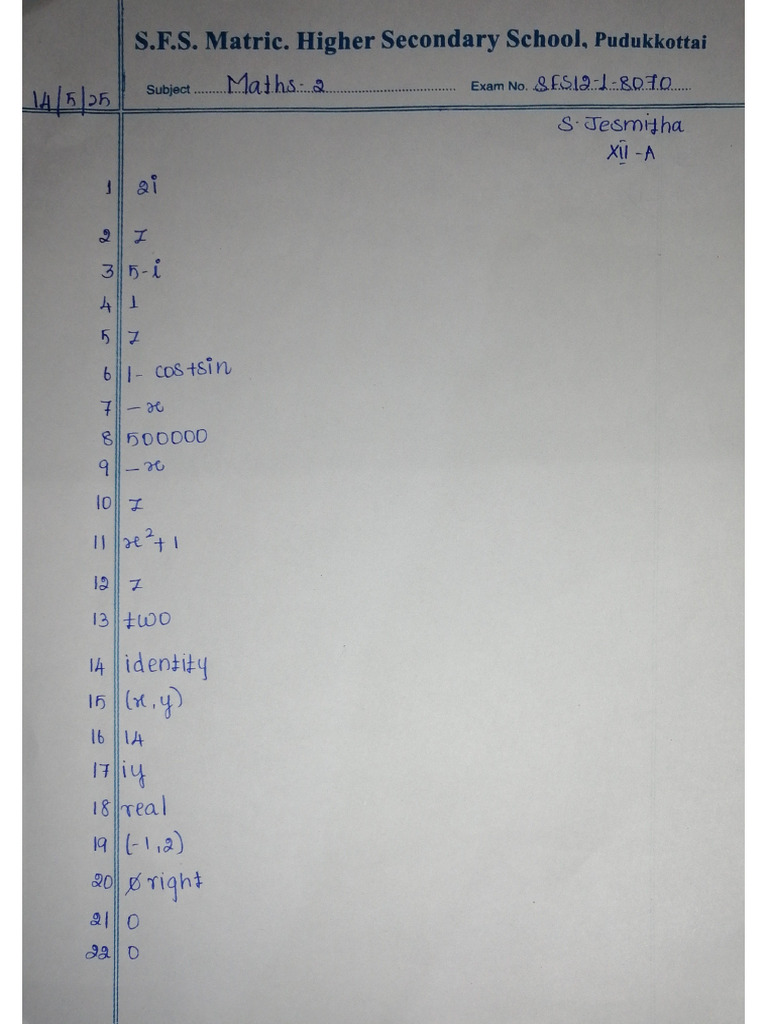 S.F.S. Matric. Higher Secondary School, Pudukkottai
14/5/25 Subject Maths-2 Exam No. SFS12-1-8070
S. Jesmitha
XII - A
1 2i
2 z
3 5-i
4 1
5 z
6 1- cos+sin
7 -x
8 500000
9 -x
10 z
11 x²+1
12 z
13 two
14 identity
15 (x,y)
16 14
17 iy
18 real
19 (-1,2)
20 right
21 0
22 0